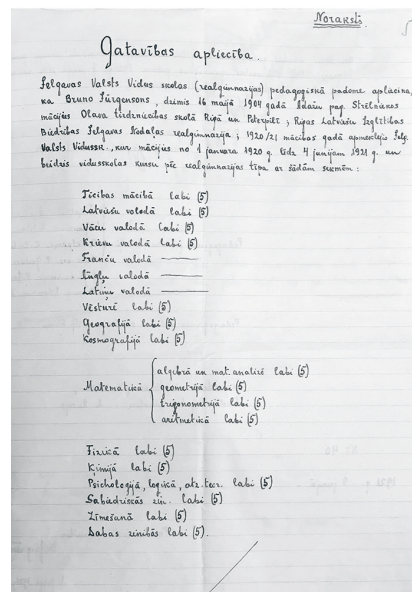 Noraksts.
Gatavības apliecība.
Jelgavas Valsts Vidus skolas (realģimnazijas) pedagoģiskā padome apliecina,
ka Bruno Jürgensons, dzimis 16 maijā 1904 gadā pag. Strēlniekos
mācījies Olava tirdzniecības skolā Rīgā un Pēterpilī; Rīgas Latviešu Izglītības
Biedrības Jelgavas Nodaļas realģimnazijā; 1920/21 mācības gadā apmeklējis Jelg.
Valsts Vidussk., kur mācījies no 1 janvara 1920 g. līdz 4 junijam 1921 g. un
beidzis vidusskolas kursu pēc realģimnazijas tīpa ar šādām sekmēm:
Ticības mācībā labi (5)
Latviešu valodā labi (5)
Vācu valodā labi (5)
Krievu valodā labi (5)
Franču valodā ———
Angļu valodā ———
Latīņu valodā ———
Vēsturē labi (5)
Geografijā labi (5)
Kosmografijā labi (5)
Matematikā
algebrā un mat. analizē labi (5)
geometrijā labi (5)
trigonometrijā labi (5)
aritmetikā labi (5)
Fizikā labi (5)
Ķīmijā labi (5)
Psichologijā, loģikā, atz. teor. labi (5)
Sabiedriskās zin. labi (5)
Zīmēšanā labi (5)
Dabas zinībās labi (5).